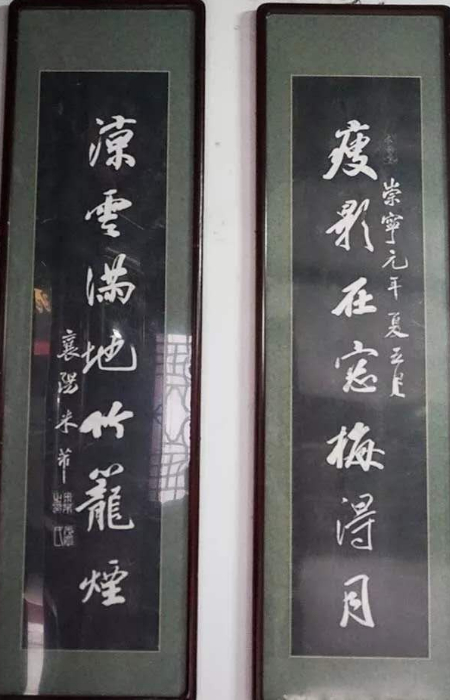 瘦影在窓梅得月
崇寧元年夏五月
涼雲満地竹籠煙
襄陽米芾